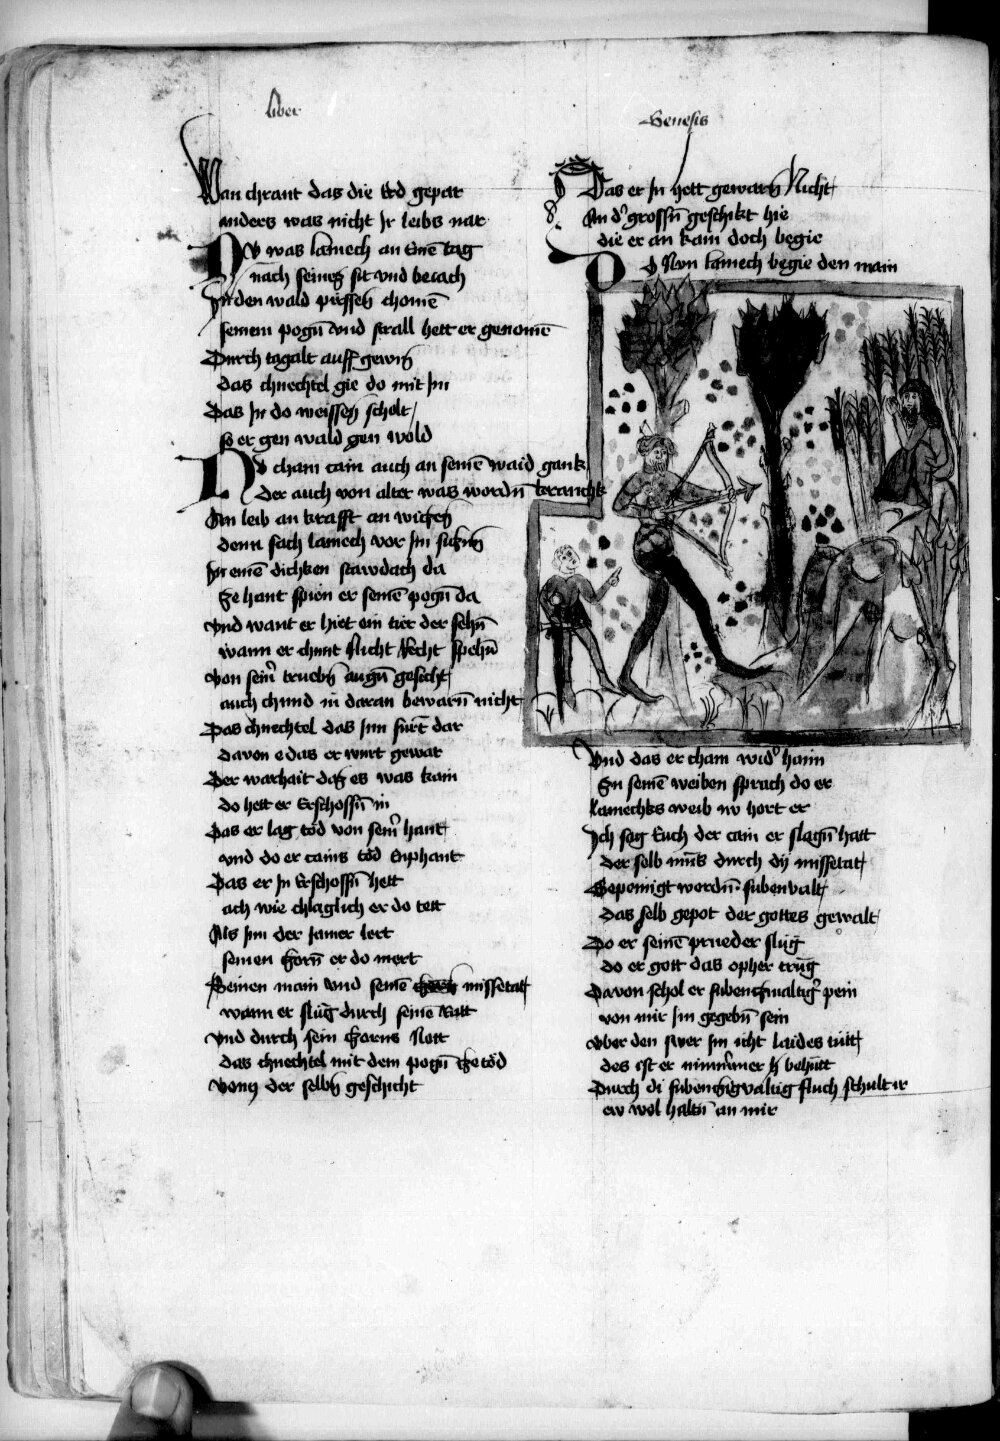 liber
Genesis
Wan chrant das die erd gepar
anders was nicht Ir leibs nar
Nv was lamech an einē tag
nach seineʒ sit vnd beiach
In den wald pirssen chomē
seinem pogn̄ vnd strall hett er genomē
Durch tagalt auff gewiņ
das chnechtel gie do mit Im
Das In do weissen scholt
so er gen wald gen wold
Nv cham cain auch an seinē waid gank
Der auch von alter was wordn̄ kranchk
Am leib an krafft an wiczen
denn sach lamech vor Im siczn̄
In einē dichken stawdach da
ze hant spien er seinē pogn̄ da
vnd want er hiet ein tier der sehn̄
wann er chunt nicht recht spehn̄
von sein̄ truebn̄ augn̄ gesicht
auch chund in daran bewarn̄ nicht
Das chnechtel das Im furt dar
davon e das er wurt gewar
Der warhait daʒ es was kain
do hett er Erschossn̄ in
Das er lag töd von sein̄ hant
vnd do er cains töd Enphant
Das er In Erschossn̄ hett
ach wie chlaglich er do tett
Als Im der Jamer lert
seinen zorn̄ er do mert
Seinen main vnd seinē missetatt
wann er slug durch seinē ratt
vnd durch sein zorns nott
das chnechtel mit dem pogn̄ ze töd
von der selbn̄ geschicht
Das er In hett gewarn̄ Nicht
An d' grossn̄ geschikt hie
die er an kain doch begie
Do Nvn lamech begie den main
Vnd das er cham wid' haim
zu seinē weiben sprach do er
lamechks weib nv hort er
Ich sag Euch der cain er slagn̄ hatt
der selb mus durch dy missetat
Gepeinigt wordn̄ sibenvalt
das selb gepot der gottes gewalt
Do er seinē prueder slug
do er gott das opher trug
Davon schol er sibenczvaltig' pein
von mir Im gegebn̄ sein
vber den swer Im icht laides tutt
des ist er nimmer behutt
Durch di sibenczigvaltig fluch schult ir
ew wol haltn̄ an mir